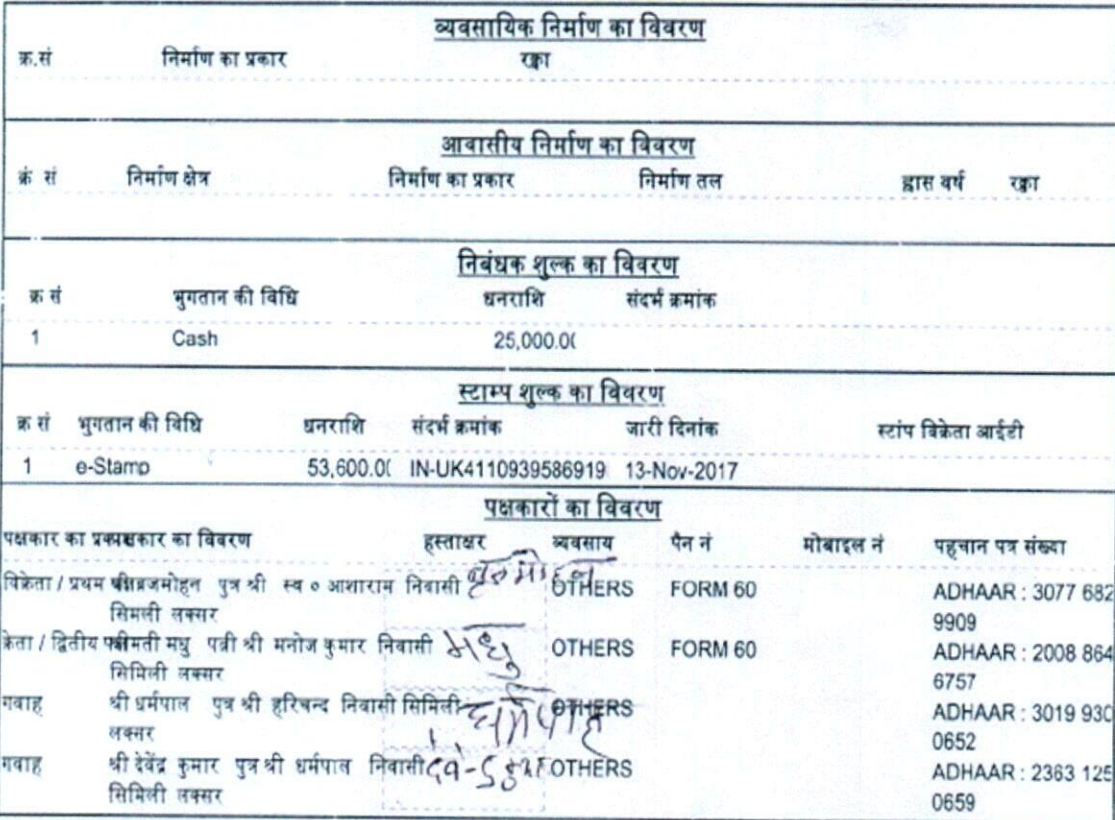 व्यवसायिक निर्माण का विवरण
क्र.सं निर्माण का प्रकार रक़्बा
आवासीय निर्माण का विवरण
क्रं सं निर्माण क्षेत्र निर्माण का प्रकार निर्माण तल ह्रास वर्ष रक़्बा
निबंधक शुल्क का विवरण
क्र सं भुगतान की विधि धनराशि संदर्भ क्रमांक
1 Cash 25,000.0
स्टाम्प शुल्क का विवरण
क्र सं भुगतान की विधि धनराशि संदर्भ क्रमांक जारी दिनांक स्टांप विक्रेता आईटी
1 e-Stamp 53,600.0 IN-UK4110939586919 13-Nov-2017
पक्षकारों का विवरण
पक्षकार का विवरण हस्ताक्षर व्यवसाय पैन नं मोबाइल नं पहचान पत्र संख्या
विक्रेता / प्रथम ब्रजमोहन पुत्र श्री स्व ० आशाराम निवासी बृजमोहन OTHERS FORM 60 ADHAAR : 3077 682
सिमली लक्सर 9909
क्रेता / द्वितीय श्रीमती मधु पत्नी श्री मनोज कुमार निवासी मधु OTHERS FORM 60 ADHAAR : 2008 864
सिमिली लक्सर 6757
गवाह श्री धर्मपाल पुत्र श्री हरिचन्द निवासी सिमिली धर्मपाल OTHERS ADHAAR : 3019 930
लक्सर 0652
गवाह श्री देवेंद्र कुमार पुत्र श्री धर्मपाल निवासी OTHERS ADHAAR : 2363 125
सिमिली लक्सर 0659